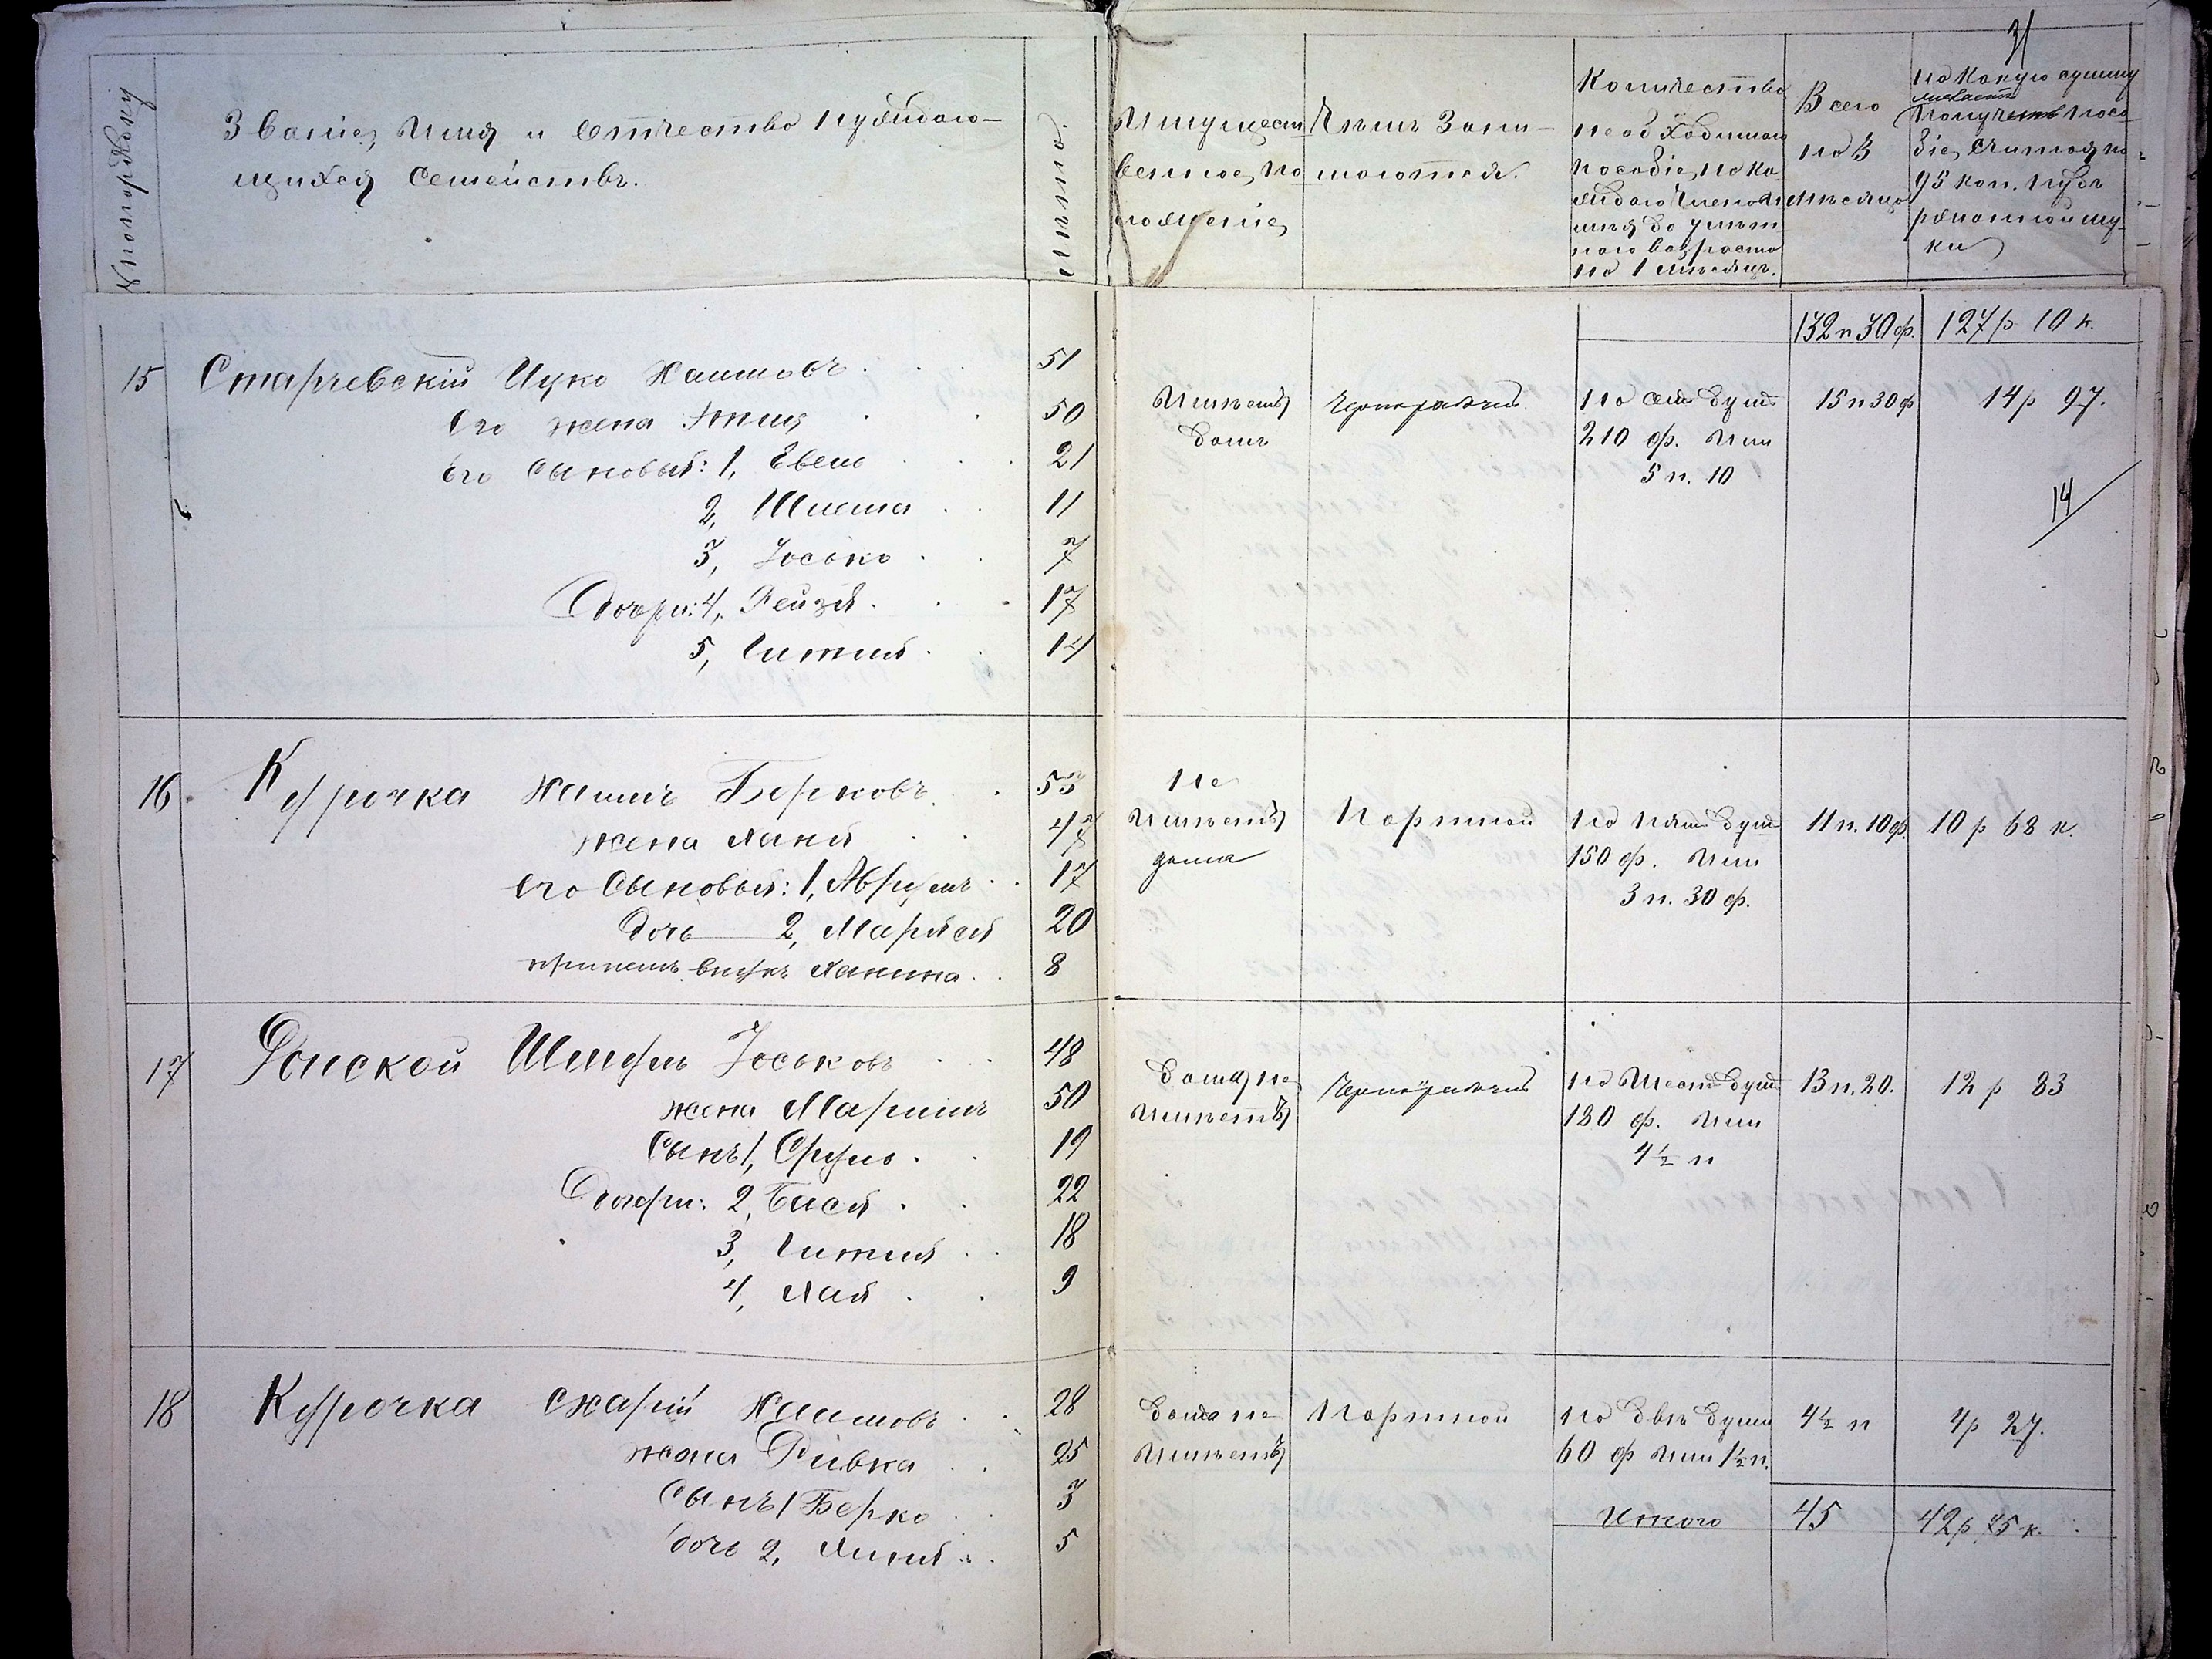 3/
№ по порядку
Званіе, имя и отчество нуждаю-
щихся семействъ.
Лѣта.
Имущест
венное по
ложеніе,
Чѣмъ Зани-
маются.
Количество
необходимаго
пособія, на ка
ждаго члена
до
наго возраста
на 1 мѣсяцъ.
Всего
на 3
мѣсяца
На Какую сумму
посо
біе, считая по
95 коп. пудъ
ржаной му-
ки
132 п 30 ф.
127 р 10 к.
15
Старчевскій Ицко Хаимовъ
51
Его жена
50
Его сыновья: 1,
21
2, Шлема
11
3, Іосько
7
Дочери: 4, Рейзя
17
5, Гитля
14
Имѣетъ
домъ
Чернорабочій
На семь душъ
210 ф. или
5 п. 10
15 п 30 ф
14 р 97.
14/
16.
Курочка Хаимъ Берковъ
53
жена Хана
47
его Сыновья: 1, Аврумъ
17
дочь 2, Маріася
20
внукъ
8
Не
имѣетъ
дома
Портной
На пять душъ
150 ф. или
3 п. 30 ф.
11 п. 10 ф.
10 р 68 к.
17
Донской Шмуль Іоськовъ
48
жена
50
Сынъ 1, Сруль
19
Дочери: 2, Бася
22
3, Гитля
18
4, Хая
9
дома не
имѣетъ
Чернорабочій
На шесть душъ
180 ф. или
4 ½ п
13 п. 20.
12 р 83
18
Курочка Схарія Хаимовъ
28
жена Ривка
25
Сынъ 1 Берко
3
дочь 2,
5
дома не
имѣетъ
Портной
На двѣ души
60 ф или 1 ½ п.
4 ½ п
4 р 27.
Итого
45
42 р 75 к.